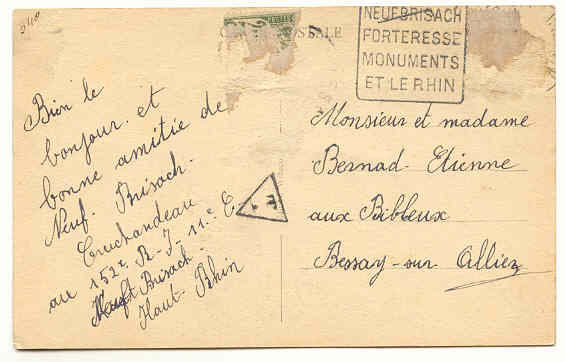 CARTE POSTALE
NEUFBRISACH
FORTERESSE
MONUMENTS
ET LE RHIN
Bien le
bonjour et
bonne amitie de
Neuf. Brisach.
Cruchandeau
au 152e R-I-11.e E.
Neuf Brisach.
Haut-Rhin
T
Monsieur et madame
Bernad-Etienne
aux Bibleux
Bessay-sur Allier